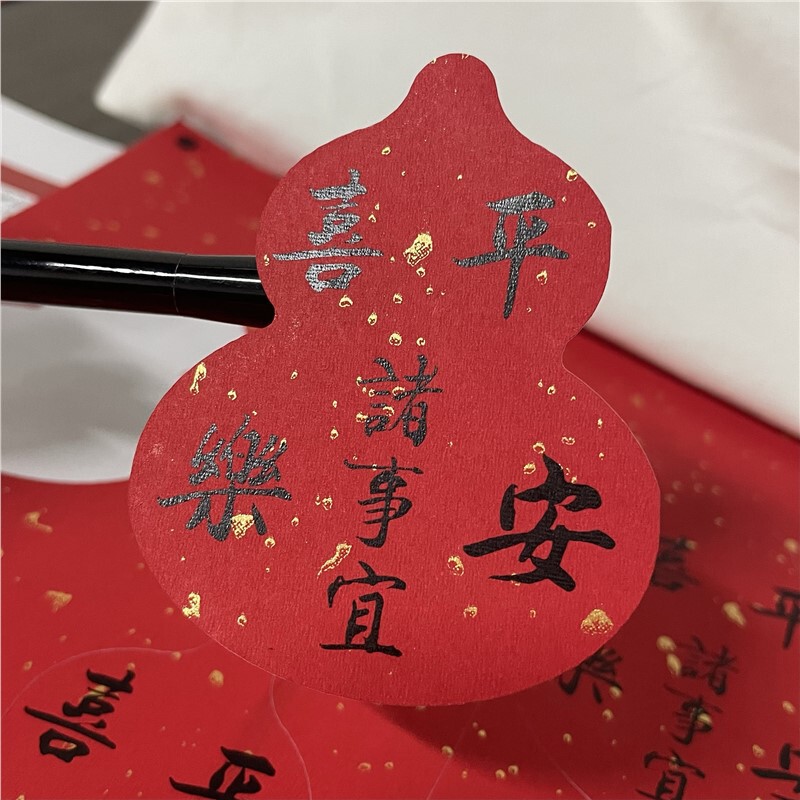 平安
喜樂
諸事宜
喜
平
平安
喜樂
諸事宜